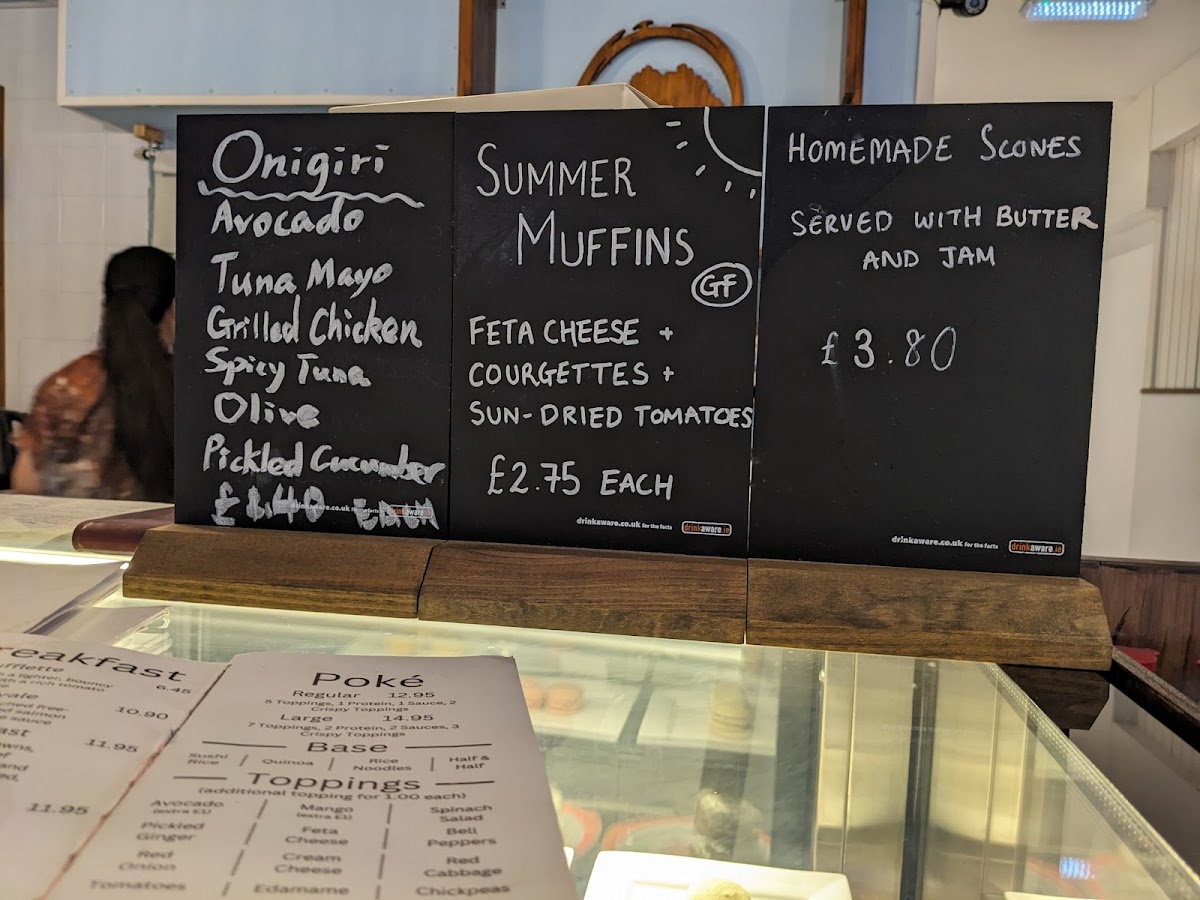 Onigiri
Avocado
Tuna Mayo
Grilled Chicken
Spicy Tuna
Olive
Pickled Cucumber
EACH
drinkaware.co.uk for the facts
SUMMER
MUFFINS
GF
FETA CHEESE +
COURGETTES +
SUN-DRIED TOMATOES
£2.75 EACH
drinkaware.co.uk for the facts drinkaware.ie
HOMEMADE SCONES
SERVED WITH BUTTER
AND JAM
£3.80
drinkaware.co.uk for the facts drinkaware.ie
reakfast
6.45
a lighter, bouncy
with a rich tomato
10.90
salmon
sauce
11.95
and
11.95
Poké
Regular 12.95
5 Toppings, 1 Protein, 1 Sauce, 2
Crispy Toppings
Large 14.95
7 Toppings, 2 Protein, 2 Sauces, 3
Crispy Toppings
Base
Sushi Rice | Quinoa | Rice Noodles | Half & Half
Toppings
(additional topping for 1.00 each)
Avocado Mango Spinach
(extra £1) (extra £1) Salad
Pickled Feta Bell
Ginger Cheese Peppers
Red Cream Red
Onion Cheese Cabbage
Tomatoes Edamame Chickpeas